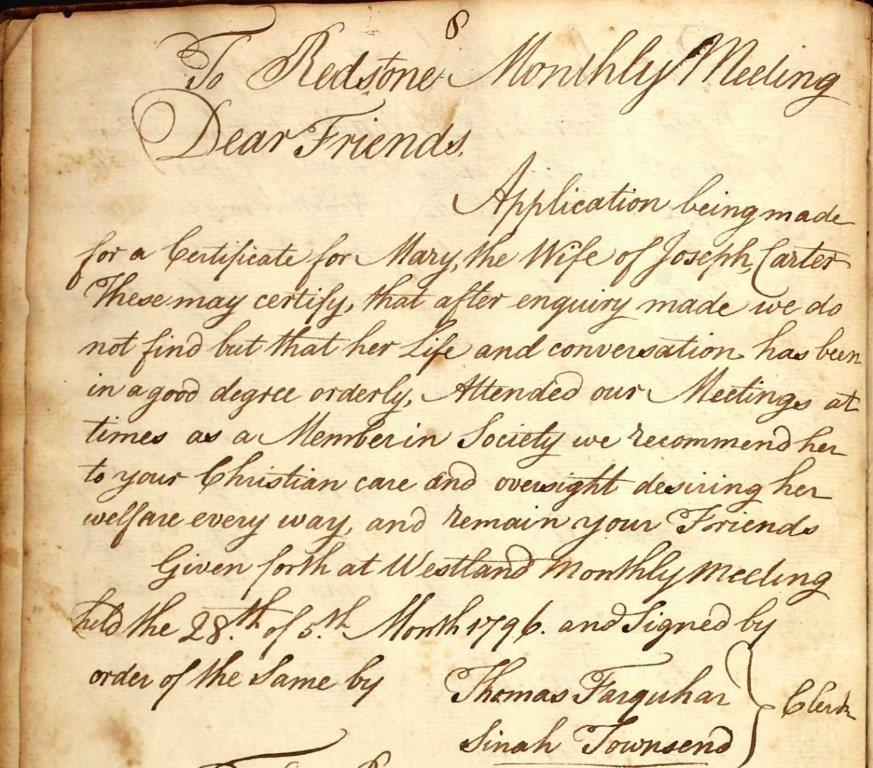 8
To Redstone Monthly Meeting
Dear Friends.
Application being made
for a Certificate for Mary, the Wife of Joseph, Carter
These may certify, that after enquiry made we do
not find but that her Life and conversation has been
in a good degree orderly, Attended our Meetings at
times as a Member in Society we recommend her
to your Christian care and oversight desiring her
welfare every way, and remain your Friends
Given forth at Westland Monthly Meeting
held the 28.th of 5.th Month 1796. and Signed by
order of the Same by Thomas Farquhar
Sinah Townsend } Clerk